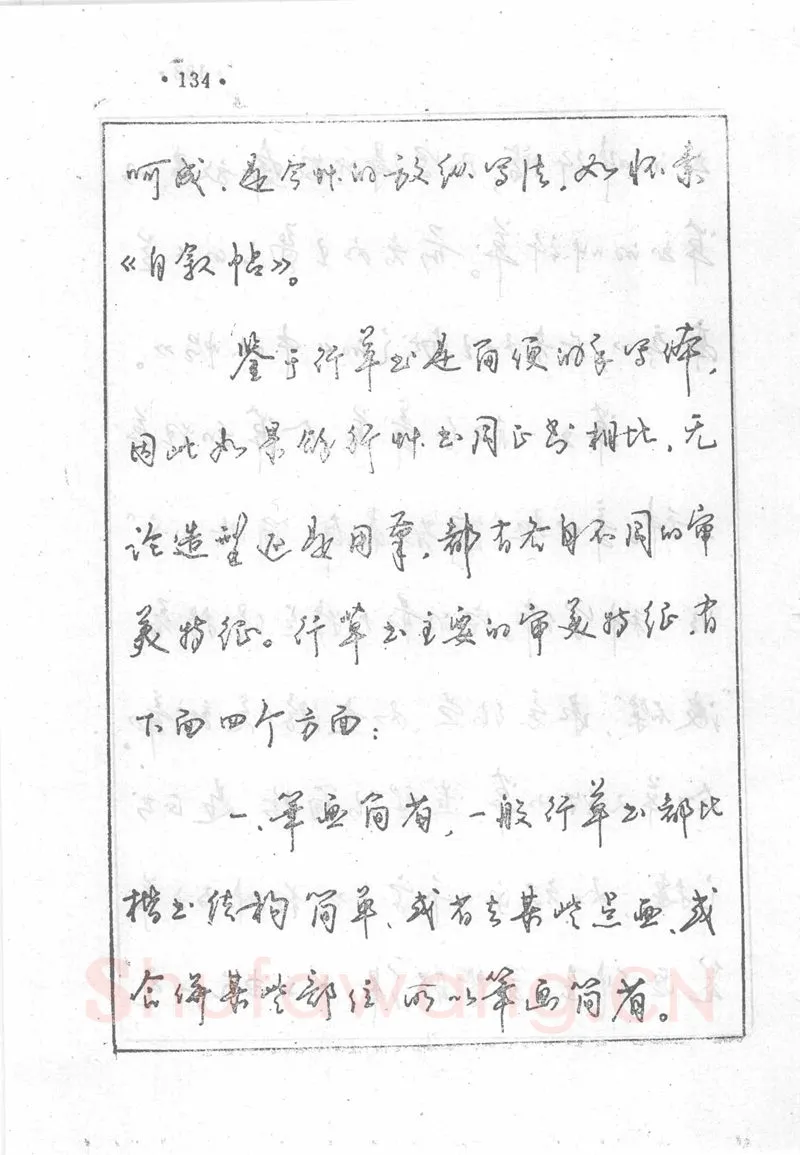 ·134·
呵成，是今草的放纵写法，如怀素
《自叙帖》。
鉴于行草书是简便的手写体，
因此如果把行草书同正书相比，无
论造型还是用笔，都有各自不同的审
美特征。行草书主要的审美特征，有
下面四个方面：
一、笔画简省，一般行草书都比
楷书结构简单，或省去某些点画，或
合併某些部位，所以笔画简省。
Shufawang.CN